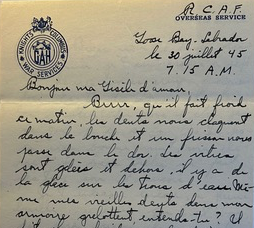 R.C.A.F.
OVERSEAS SERVICE
KNIGHTS OF COLUMBUS
CAH
WAR SERVICES
Goose Bay, Labrador
le 30 juillet 45
7.15 A.M.
Bonjour ma Gisèle d'amour,
Brrr, qu'il fait froid
ce matin, les dents nous claquent
dans la bouche et un frisson nous
passe dans le dos. Les vitres
sont gelées et dehors, il y a de
la glace sur les tonnes d'eau. Mê-
me mes vieilles dents dans mon
armoire grelottent entends-tu? Il